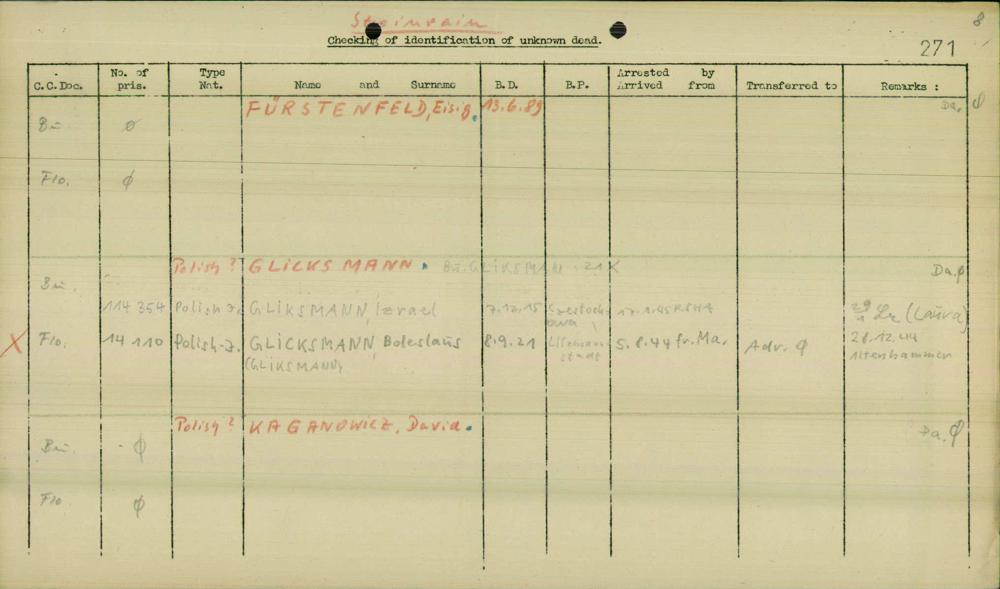 Steinrain
8
Checking of identification of unknown dead.
271
C.C.Doc. No. of pris. Type Nat. Name and Surname B.D. B.P. Arrested by Arrived from Transferred to Remarks :
FÜRSTENFELD, Eisig. 13.6.89 Da. ϕ
Bu. ϕ
Flo. ϕ
Polish ? GLICKSMANN. Bu. GLIKSMAN · 21 X Da. ϕ
Bu.
114 354 Polish-J. GLIKSMANN, Izrael 7.12.15 Czestochowa 17.1.45 RSHA (Laura)
X Flo. 14 110 Polish-J. GLICKSMANN, Boleslaus 8.9.21 Litzmannstadt 5.8.44 fr. Ma. Adv. ϕ 28.12.44 Altenhammer
(GLIKSMANN)
Polish ? KAGANOWICZ, David. Da. ϕ
Bu. - ϕ
Flo ϕ